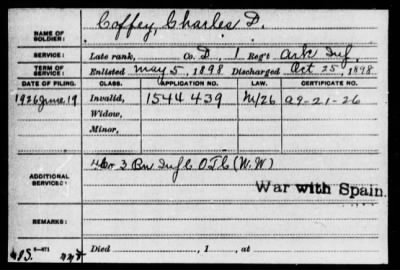 NAME OF SOLDIER: Coffey, Charles D.
SERVICE: Late rank, Co. D, 1 Reg't Ark Inf.
TERM OF SERVICE: Enlisted May 5, 1898 Discharged Oct 25, 1898
DATE OF FILING. CLASS. APPLICATION NO. LAW. CERTIFICATE NO.
1926 June 19 Invalid, 1544439 A 9-21-26
Widow,
Minor,
ADDITIONAL SERVICES: 3 Bn Inf C O T C (W.W)
War with Spain.
REMARKS:
Died , 1 , at